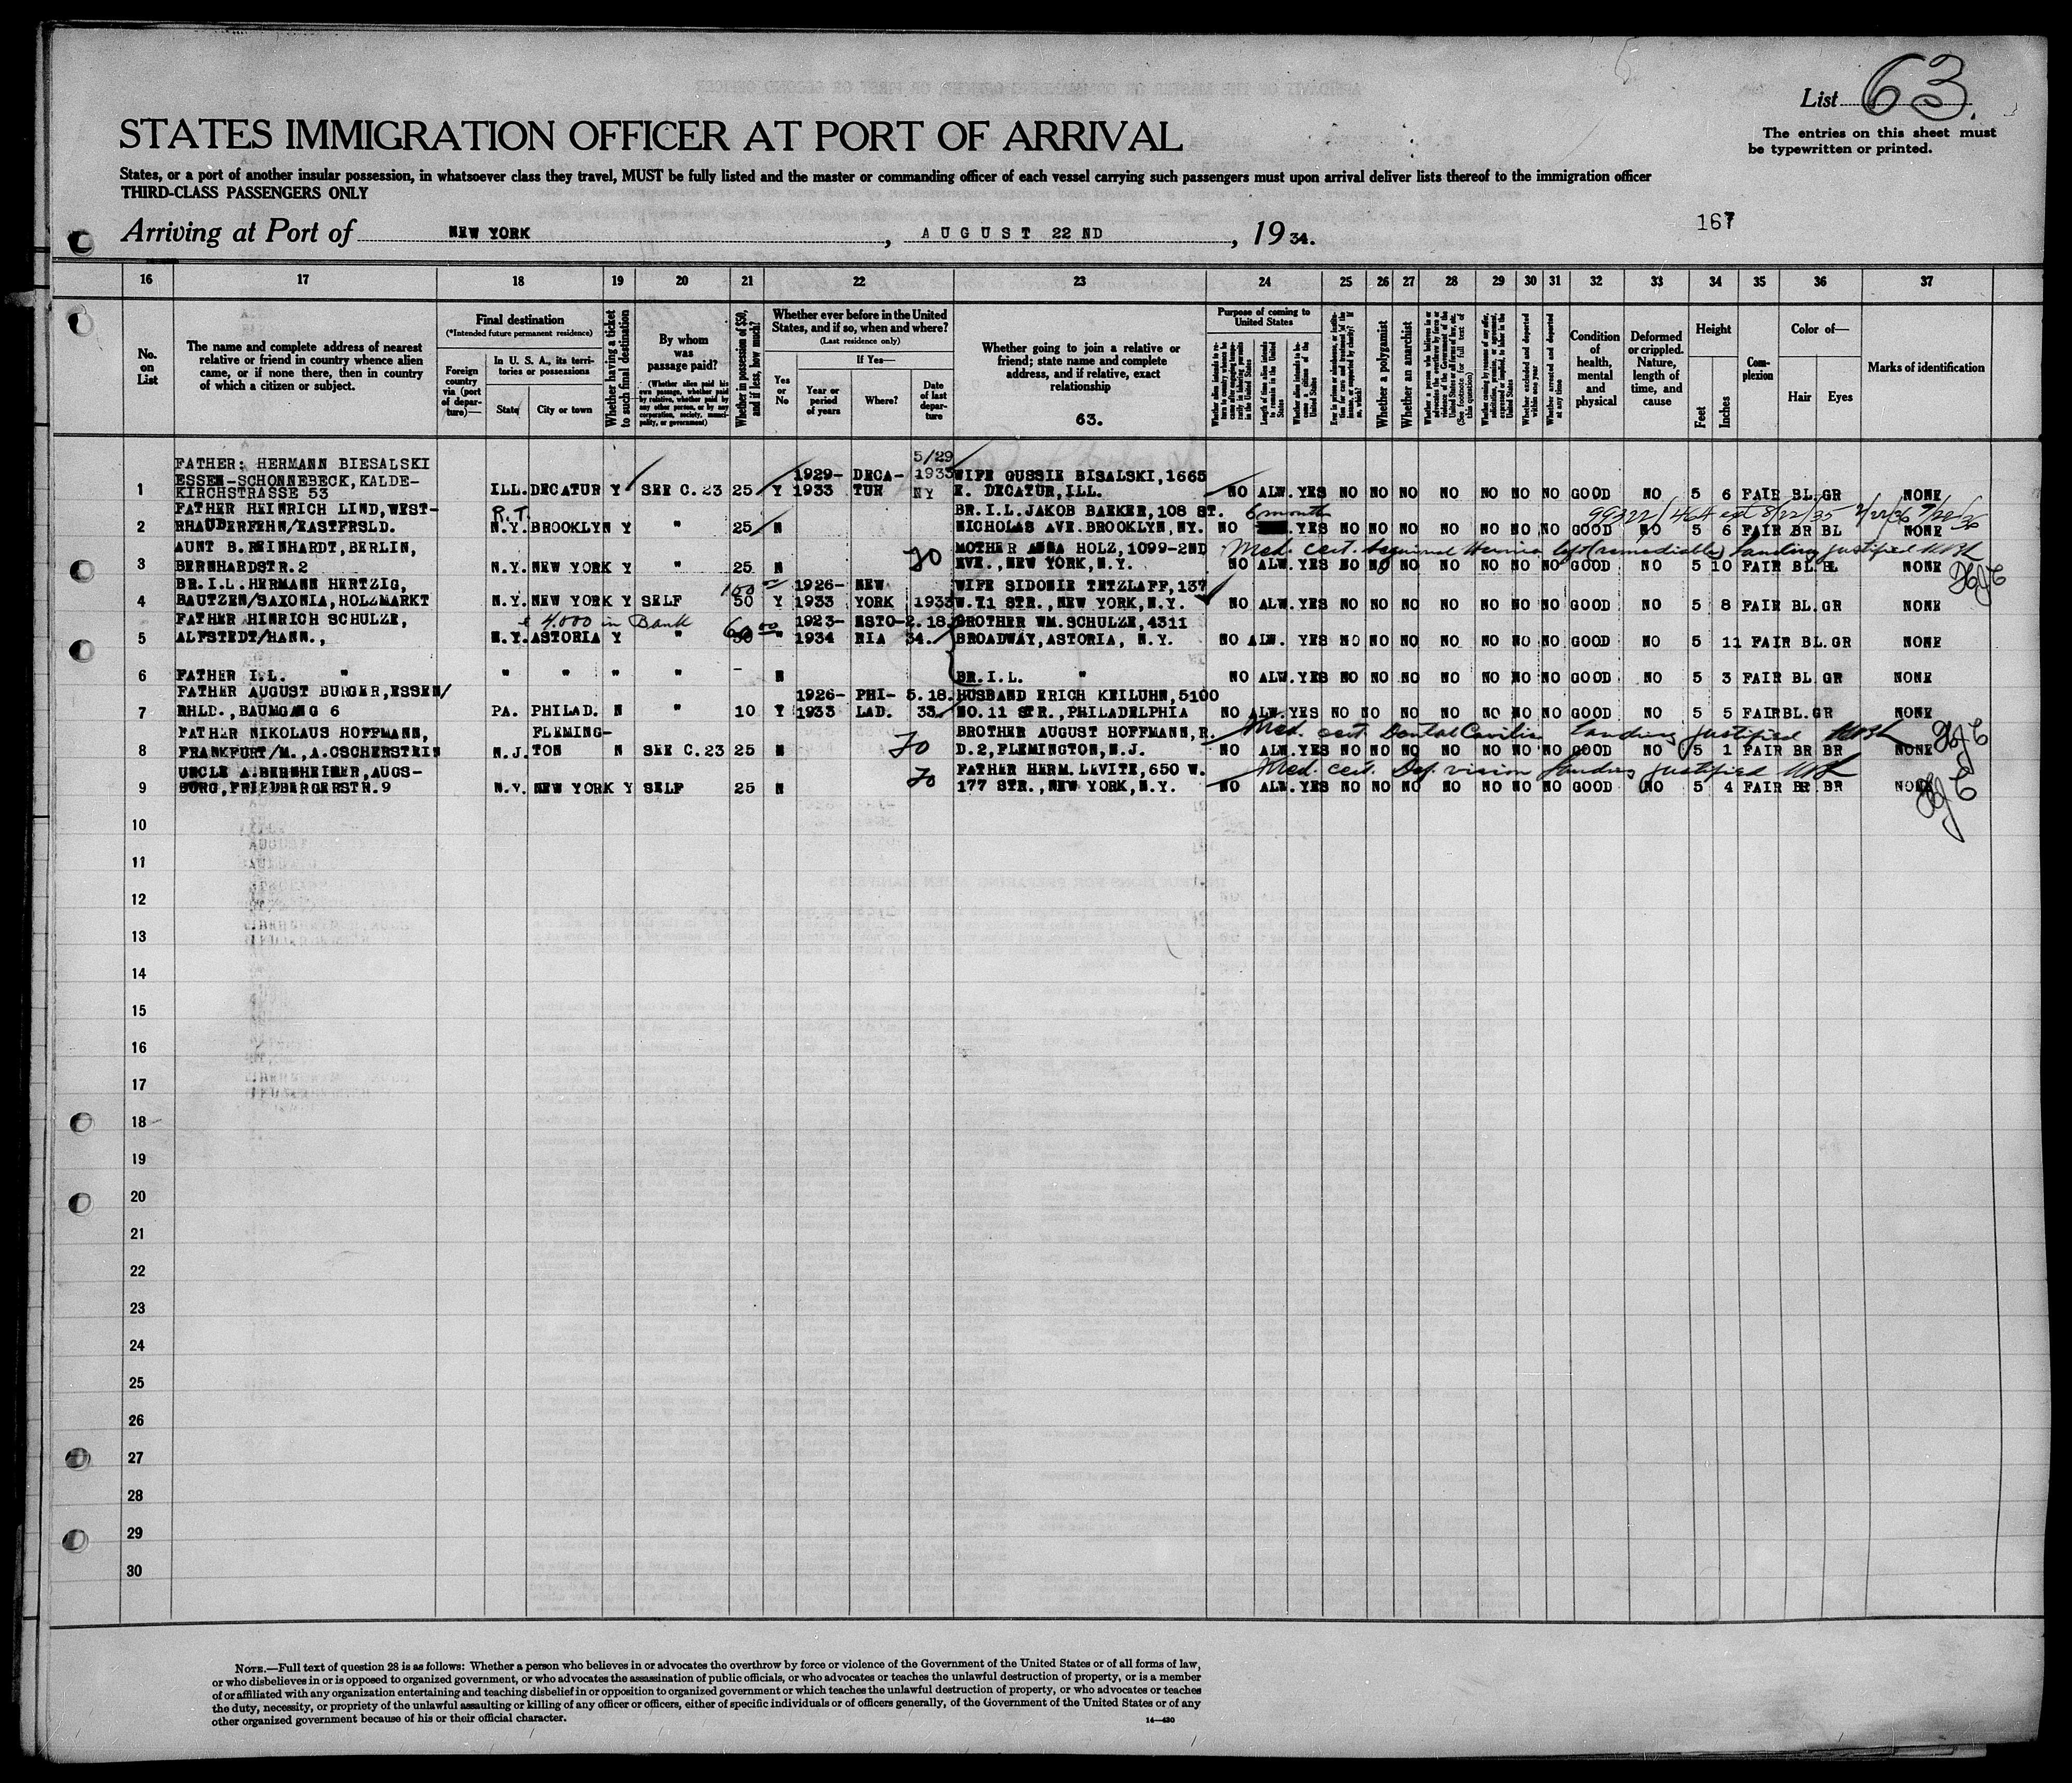 List 63.
The entries on this sheet must
be typewritten or printed.
STATES IMMIGRATION OFFICER AT PORT OF ARRIVAL
States, or a port of another insular possession, in whatsoever class they travel, MUST be fully listed and the master or commanding officer of each vessel carrying such passengers must upon arrival deliver lists thereof to the immigration officer
THIRD-CLASS PASSENGERS ONLY
167
Arriving at Port of NEW YORK, AUGUST 22 ND, 1934.
16 17 18 19 20 21 22 23 24 25 26 27 28 29 30 31 32 33 34 35 36 37
No. on List
The name and complete address of nearest relative or friend in country whence alien came, or if none there, then in country of which a citizen or subject.
Final destination
(*Intended future permanent residence)
Foreign country via (port of departure)—
In U. S. A., its territories or possessions
State
City or town
Whether having a ticket to such final destination
By whom was passage paid?
(Whether alien paid his own passage, whether paid by relative, whether paid by any other person, or by any corporation, society, municipality, or government)
Whether in possession of $50, and if less, how much?
Whether ever before in the United States, and if so, when and where?
(Last residence only)
Yes or No
If Yes—
Year or period of years
Where?
Date of last departure
Whether going to join a relative or friend; state name and complete address, and if relative, exact relationship
63.
Purpose of coming to United States
Length of time alien intends to remain in the United States
Whether alien intends to become a citizen of the United States
Whether a polygamist
Whether an anarchist
Whether excluded and deported within one year
Whether arrested and deported at any time
Condition of health, mental and physical
Deformed or crippled. Nature, length of time, and cause
Height
Feet
Inches
Complexion
Color of—
Hair
Eyes
Marks of identification
FATHER: HERMANN BIESALSKI 5/29
ESSEN-SCHONNEBECK, KALDE- 1929- DECA- 1933 WIFE GUSSIE BISALSKI, 1665
1 KIRCHSTRASSE 53 ILL. DECATUR Y SEE C.23 25 Y 1933 TUR NY E. DECATUR, ILL. NO ALW. YES NO NO NO NO NO NO NO GOOD NO 5 6 FAIR BL. GR NONE
FATHER HEINRICH LIND, WEST- R.T. BR.I.L. JAKOB BAEKER, 108 ST. 6 month 99322/464 ext 8/22/35 2/22/36 7/20/36
2 RHAUDERFEHN/EASTFRSLD. N.Y. BROOKLYN Y " 25 N NICHOLAS AVE. BROOKLYN, NY. NO YES NO NO NO NO NO NO NO GOOD NO 5 6 FAIR BR BL NONE
AUNT B. REINHARDT, BERLIN, MOTHER ANNA HOLZ, 1099-2ND Med. cert. Inguinal Hernia left (remediable) Landing justified
3 BERNHARDSTR.2 N.Y. NEW YORK Y " 25 N AVE., NEW YORK, N.Y. NO ALW. YES NO NO NO NO NO NO NO GOOD NO 5 10 FAIR BL. NONE
BR.I.L. HERMANN HERTZIG, 150 1926- NEW WIFE SIDONIE TETZLAFF, 137
4 BAUTZEN/SAXONIA, HOLZMARKT N.Y. NEW YORK Y SELF 50 Y 1933 YORK 1933 W.71 STR., NEW YORK, N.Y. NO ALW. YES NO NO NO NO NO NO NO GOOD NO 5 8 FAIR BL. GR NONE
FATHER HINRICH SCHULZE, 4,000 in Bank 60 00 1923- ESTO- 2.18. BROTHER WM. SCHULZE, 4311
5 ALFSTEDT/HANN., N.Y. ASTORIA Y " 50 " 1934 RIA 34. BROADWAY, ASTORIA, N.Y. NO ALW. YES NO NO NO NO NO NO NO GOOD NO 5 11 FAIR BL. GR NONE
6 FATHER I.L. " " " " " - N BR.I.L. " NO ALW. YES NO NO NO NO NO NO NO GOOD NO 5 3 FAIR BL. GR NONE
FATHER AUGUST BURGER, ESSEN/ 1926- PHI- 5.18. HUSBAND ERICH KEILUHN, 5100
7 RHLD., BAUMGANG 6 PA. PHILAD. N " 10 Y 1933 LAD. 33. NO. 11 STR., PHILADELPHIA NO ALW. YES NO NO NO NO NO NO NO GOOD NO 5 5 FAIR BL. GR NONE
FATHER NIKOLAUS HOFFMANN, FLEMING- BROTHER AUGUST HOFFMANN, R. Med. cert. Dental Cavities Landing justified
8 FRANKFURT/M., A.OSCHERSTEIN N.J. TON N SEE C.23 25 N D.2, FLEMINGTON, N.J. NO ALW. YES NO NO NO NO NO NO NO GOOD NO 5 1 FAIR BR BR NONE
UNCLE A. BERNHEIMER, AUGS- FATHER HERM. LEVITE, 650 W. Med. cert. Def. vision Landing justified
9 BURG, FRIEDBERGERSTR.9 N.Y. NEW YORK Y SELF 25 N 177 STR., NEW YORK, N.Y. NO ALW. YES NO NO NO NO NO NO NO GOOD NO 5 4 FAIR BR BR NONE
10
11
12
13
14
15
16
17
18
19
20
21
22
23
24
25
26
27
28
29
30
NOTE.—Full text of question 28 is as follows: Whether a person who believes in or advocates the overthrow by force or violence of the Government of the United States or of all forms of law,
or who disbelieves in or is opposed to organized government, or who advocates the assassination of public officials, or who advocates or teaches the unlawful destruction of property, or is a member
of or affiliated with any organization entertaining and teaching disbelief in or opposition to organized government or which teaches the unlawful destruction of property, or who advocates or teaches
the duty, necessity, or propriety of the unlawful assaulting or killing of any officer or officers, either of specific individuals or of officers generally, of the Government of the United States or of any
other organized government because of his or their official character.
14—430